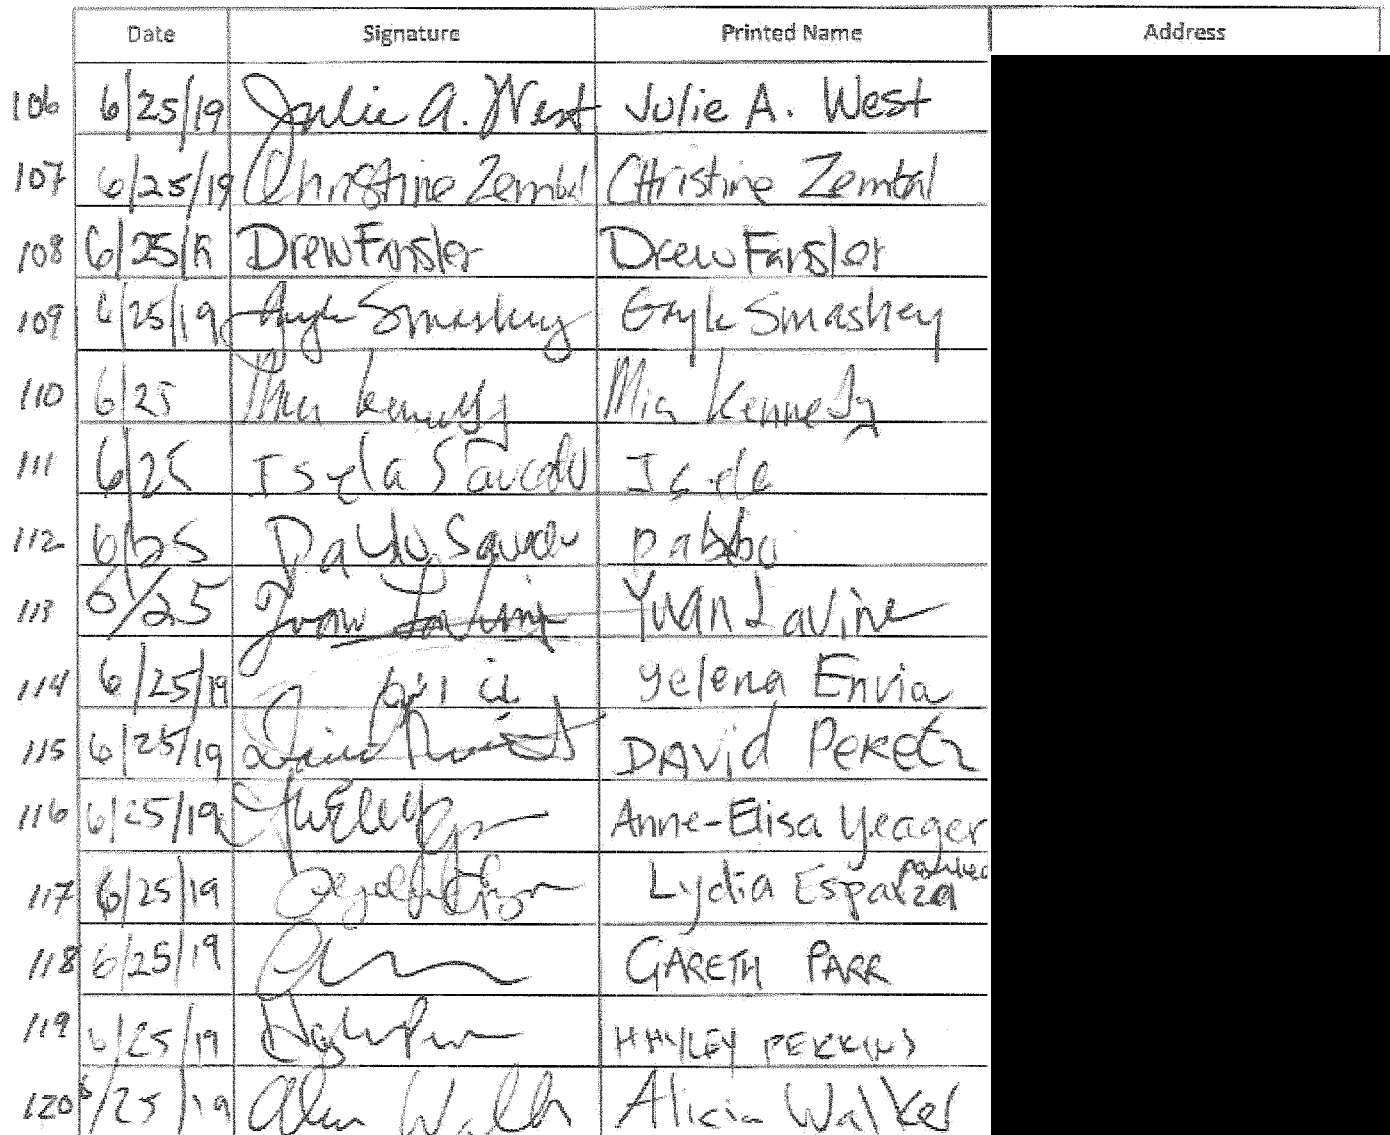 Date Signature Printed Name Address
106 6/25/19 Julie A. West Julie A. West
107 6/25/19 Christine Zembal Christine Zembal
108 6/25/19 Drew Fansler Drew Fansler
109 6/25/19 Gayle Smashey Gayle Smashey
110 6/25 Mia Kennedy Mia Kennedy
111 6/25 Isela Isela
112 6/25 Pablo
113 6/25 Yuan Lavine
114 6/25/19 Yelena Envia
115 6/25/19 David Peretz
116 6/25/19 Anne-Elisa Yeager
117 6/25/19 Lydia Esparza
118 6/25/19 GARETH PARR
119 6/25/19 HAYLEY PERKINS
120 6/25/19 Alicia Walker